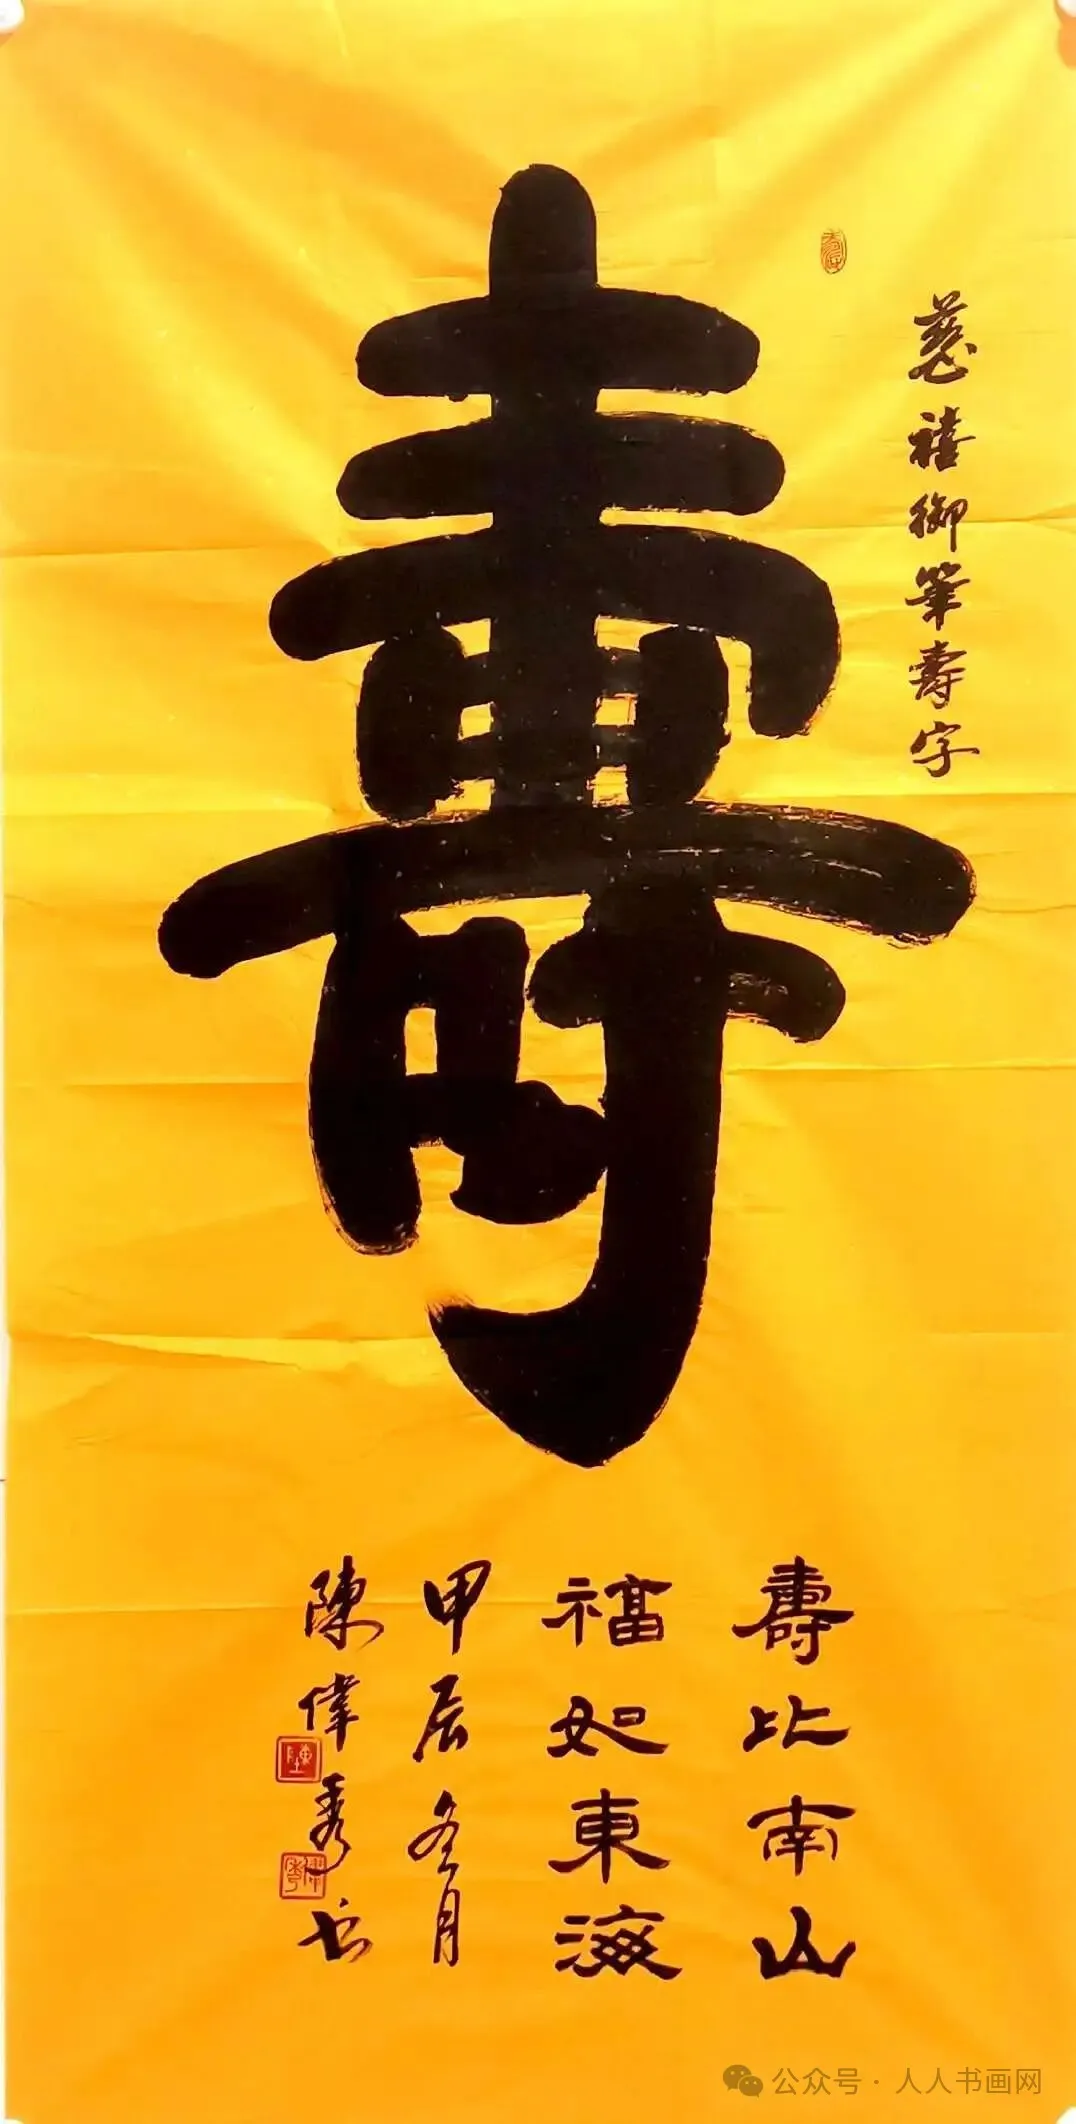 壽
慈禧御筆壽字
壽比南山
福如東海
甲辰冬月
陳偉秀书
公众号·人人书画网